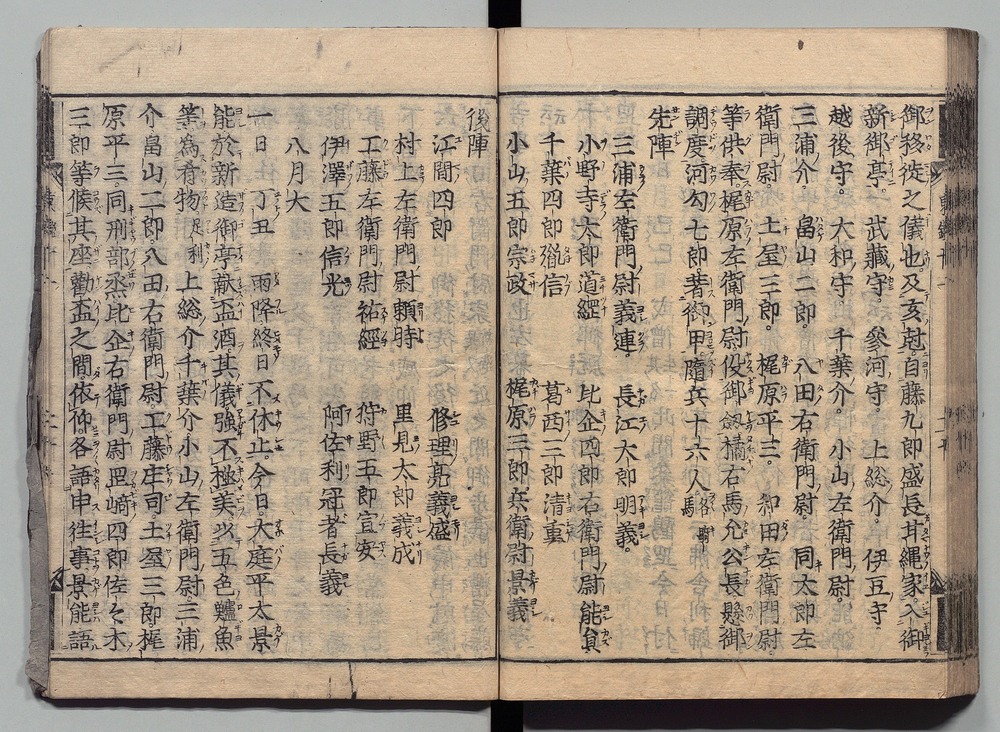 御移徙之儀也及亥尅自藤九郎盛長耳縄家入御
新御亭。武藏守。參河守。上総介。伊豆守。
越後守。大和守。千葉介。小山左衛門尉。
三浦介。畠山二郎。八田右衛門尉。同太郎左
衛門尉。土屋三郎。梶原平三。和田左衛門尉
等供奉。梶原左衛門尉役御劔橘右馬允公長懸御
調度河勾七郎著御甲隨兵十六人各騎馬
先陣
三浦左衛門尉義連。長江太郎明義。
小野寺太郎道經 比企四郎右衛門尉能員
千葉四郎胤信 葛西三郎清重
小山五郎宗政 梶原三郎兵衛尉景義
後陣
江間四郎 修理亮義盛
村上左衛門尉頼時 里見太郎義成
工藤左衛門尉祐經 狩野五郎宣安
伊澤五郎信光 阿佐利冠者長義
八月大
一日丁丑雨降終日不休止今日大庭平太景
能於新造御亭献盃酒其儀強不極美以五色鱸魚
等為肴物足利上総介千葉介小山左衛門尉三浦
介畠山二郎八田右衛門尉工藤庄司土屋三郎梶
原平三同刑部烝比企右衛門尉岡﨑四郎佐々木
三郎等候其座勸盃之間依仰各語申往事景能語